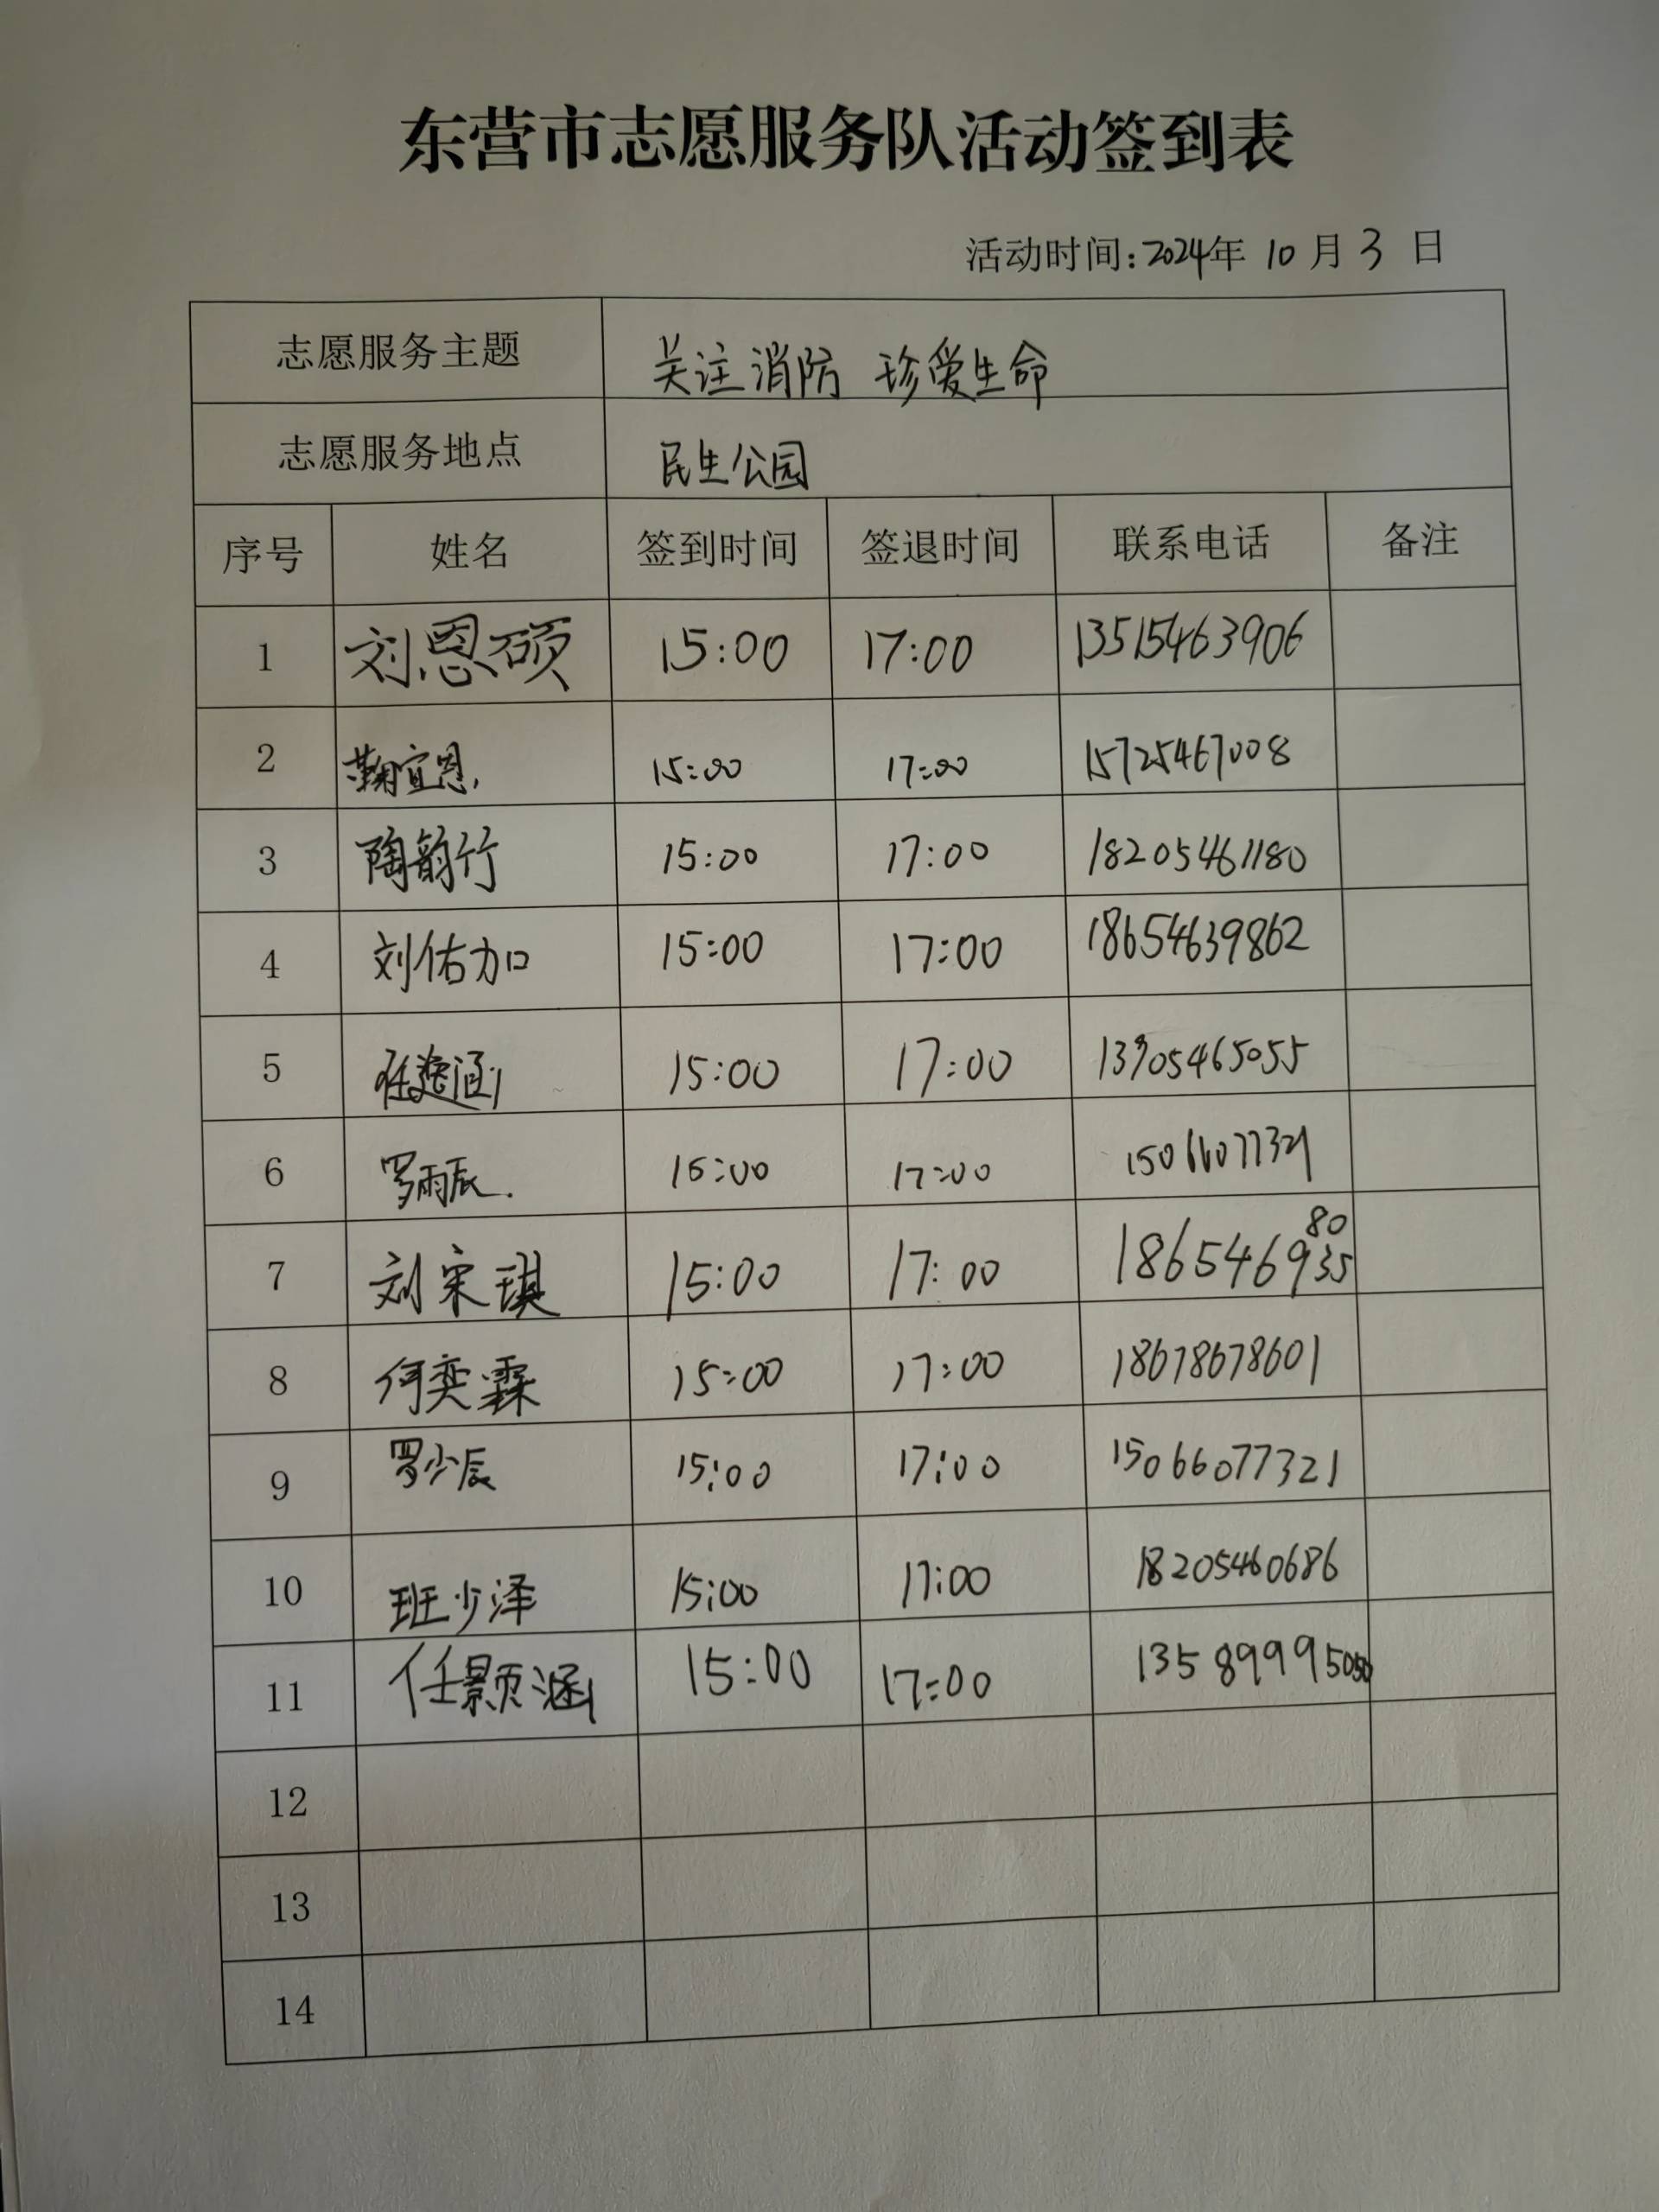 东营市志愿服务队活动签到表
活动时间:2024年 10 月 3 日
志愿服务主题 关注消防 珍爱生命
志愿服务地点 民生公园
序号 姓名 签到时间 签退时间 联系电话 备注
1 刘恩硕 15:00 17:00 13515463906
2 鞠宜恩 15:00 17:00 15725467008
3 陶韵竹 15:00 17:00 18205461180
4 刘佑加 15:00 17:00 18654639862
5 15:00 17:00 13705465055
6 罗雨辰. 15:00 17:00 15066077321
7 刘宋琪 15:00 17:00 18654693580
8 何奕霖 15:00 17:00 18678678601
9 罗少辰 15:00 17:00 15066077321
10 班少泽 15:00 17:00 18205460686
11 任颢涵 15:00 17:00 13589995050
12
13
14